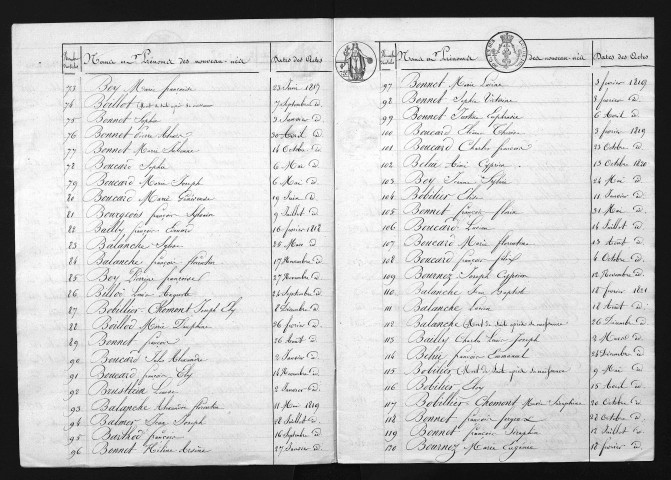 Noms et Prénoms des nouveau-nés Dates des Actes
73 Boy Marie françoise 23 Juin 1817
74 Baillot 7 Septembre d.
75 Bonnet Sophie 3 Janvier d.
76 Bonnet Pierre 30 Avril d.
77 Bonnet Marie 14 Octobre d.
78 Boucard Sophie 6 Mai d.
79 Boucard Marie Joseph 6 Mai d.
80 Boucard Marie 19 Juin d.
81 Bourgeois françois Sylvain 9 Juillet d.
82 Bailly françois 16 février 1818
83 Balanche 25 Mars d.
84 Balanche françois florentin 17 Novembre d.
85 Boy françoise 27 Novembre d.
86 Billod Louis Auguste 24 Septembre d.
87 Bobillier Chemont Joseph Ely 8 Décembre d.
88 Baillod Marie Delphine 26 février d.
89 Bonnet françois 26 Août d.
90 Boucard Jules Alexandre 2 Janvier d.
91 Boucard françois Ely 14 Novembre d.
92 Louise 2 Janvier d.
93 Balanche florentin 11 Mai 1819
94 Balmer Joseph 28 Juillet d.
95 Barthod françois 16 Septembre d.
96 Bonnet 27 Janvier d.
Noms et Prénoms des nouveau-nés Dates des Actes
97 Bonnet Marie Louise 3 février 1819
98 Bonnet Sophie Victoire 3 février d.
99 Bonnet Justine Euphrasie 6 Avril d.
100 Boucard 3 février 1819
101 Boucard Charles françois 23 Octobre d.
102 Belin Cyprien 13 Octobre 1820
103 Boy Sylvie 24 Mai d.
104 Bobilier Elise 11 Janvier d.
105 Bonnet françois 31 Mai d.
106 Boucard Louise 14 Juillet d.
107 Boucard Marie florentine 13 Août d.
108 Boucard françois 4 Octobre d.
109 Bournez Joseph Cyprien 12 Novembre d.
110 Balanche Jean Baptiste 18 février 1821
111 Balanche Louise 18 Août d.
112 Balanche Mort de suite après sa naissance 26 Décembre d.
113 Bailly Charles Louis Joseph 2 Mars d.
114 Belin françois Emmanuel 24 Décembre d.
115 Bobilier Mort de suite après sa naissance 9 Mai d.
116 Bobilier Ely 15 Avril d.
117 Bobillier Chemont Marie Séraphine 20 Octobre d.
118 Bonnet françois 22 Octobre d.
119 Bonnet françois Séraphin 12 Juillet d.
120 Bournez Marie Eugénie 18 février d.